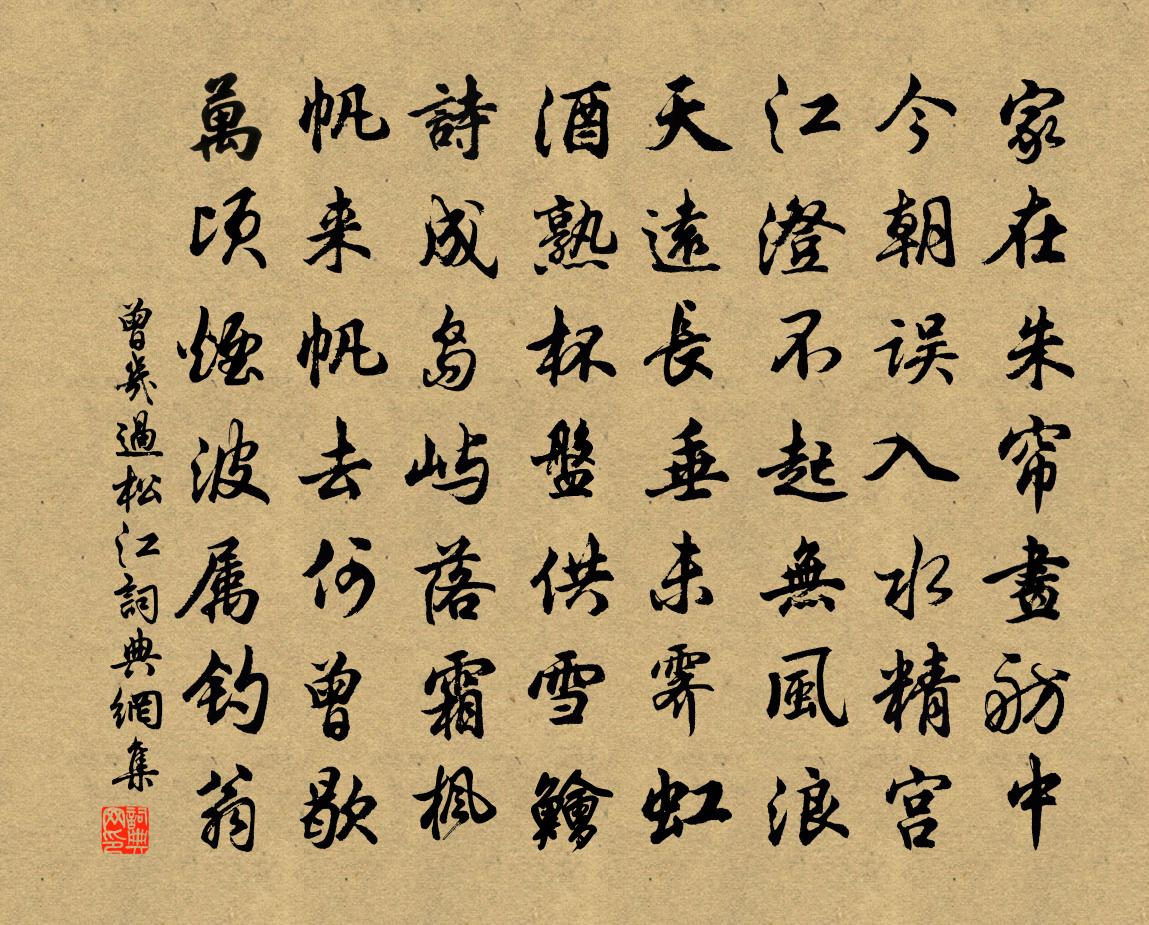 家在朱帘畫舫中
今朝误入水精宫
江澄不起無風浪
天遠長垂未霽虹
酒熟杯盤供雪鱠
詩成島屿落霜楓
帆来帆去何曾歇
萬頃煙波属钓翁
曾幾過松江詞典網集
詞典网印